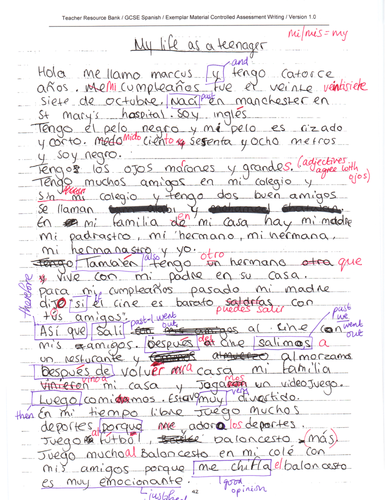 Teacher Resource Bank / GCSE Spanish / Exemplar Material Controlled Assessment Writing / Version 1.0
mi/mis = my
My life as a teenager
and
Hola me llamo marcus y tengo catorce
años. Mi cumpleaños fue el veinte veintisiete
siete de octubre. Nací past en manchester en
St mary's hospital. Soy inglés.
Tengo el pelo negro y mi pelo es rizado
y corto. Mido ciento sesenta y ocho metros
y soy negro.
Tengo los ojos marones y grandes. (adjectives agree with ojos)
Tengo muchos amigos en mi colegio y
mi colegio y tengo dos buen amigos
se llaman
En mi familia en mi casa hay mi madre
mi padrastro, mi hermano, mi hermana,
mi hermanastro y yo.
also otro
Tambien tengo un hermano otra que
vive con mi padre en su casa.
Para mi cumpleaños pasado mi madre
dijo si el cine es barato saldrías con
therefore
tus amigos. puedes salir
Así que salí past-I went out amigos al cine con
past we went out
mis amigos. Después del cine salimos a
un resturante y almorzamos
Después de volver a casa mi familia
vino a mi casa y Jugamos un videojuego.
Luego comidamos. Estava muy divertido.
then very
En mi tiempo libre Juego muchos
deportes porque me adoro los deportes.
Juego al futbol, baloncesto (más)
Juego mucho al baloncesto en mi colé con
mis amigos porque me chifla el baloncesto
good opinion
es muy emocionante.
42